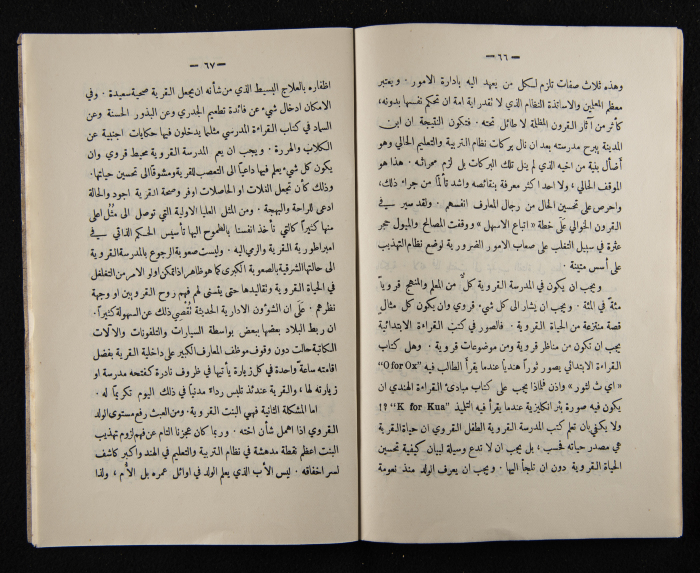 — ٦٦ —
وهذه ثلاث صفات تلزم لكل من يعهد اليه بادارة الامور . ويعتبر
معظم المعلمين والاساتذة النظام الذي لا تقدر اية امة ان تحكم نفسها بدونه،
كأثر من آثار القرون المظلمة لا طائل تحته . فتكون النتيجة ان ابن
المدينة يبرح مدرسته بعد ان نال بركات نظام التربية والتعليم الحالي وهو
أضأل بنية من اخيه الذي لم ينل تلك البركات بل لزم محراثه . هذا هو
الموقف الحالي ، ولا احد اكثر معرفة بنقائصه واشد تألماً من جراء ذلك،
واحرص على تحسين الحال من رجال المعارف انفسهم . ولقد سير في
القرون الخوالي على خطة « اتباع الاسهل » ووقفت المصالح والميول حجر
عثرة في سبيل التغلب على صعاب الامور الضرورية لوضع نظام التهذيب
على أسس متينة .
ويجب ان يكون في المدرسة القروية كلٌّ من المعلم والمنهج قروياً
مئة في المئة . ويجب ان يشار الى كل شيء قروي وان يكون كل مثال
قصة منتزعة من الحياة القروية . فالصور في كتب القراءة الابتدائية
يجب ان تكون من مناظر قروية ومن موضوعات قروية . وهل كتاب
القراءة الابتدائي يصور ثوراً هندياً عندما يقرأ الطالب فيه "O for Ox"
« اي ث لثور » واذن فلماذا يجب على كتاب مبادئ القراءة الهندي ان
يكون فيه صورة بئر انكليزية عندما يقرأ فيه التلميذ "K for Kua" ؟!
ولا يكفي بان تعلم كتب المدرسة القروية الطفل القروي ان حياة القرية
هي مصدر حياته فحسب ، بل يجب ان لا تدع وسيلة لبيان كيفية تحسين
الحياة القروية دون ان تلجأ اليها . ويجب ان يعرف الولد منذ نعومة
— ٦٧ —
اظفاره بالعلاج البسيط الذي من شأنه ان يجعل القرية صحية سعيدة . وفي
الامكان ادخال شيء عن فائدة تطعيم الجدري وعن البذور الحسنة وعن
السماد في كتاب القراءة المدرسي مثلما يدخلون فيها حكايات اجنبية عن
الكلاب والهررة . ويجب ان يعم المدرسة القروية محيط قروي وان
يكون كل شيء يعلم فيها داعياً الى التعصب للقرية ومشوقاً الى تحسين حياتها.
وذلك كأن تجعل الغلات او الحاصلات اوفر وصحة القرية اجود والحالة
ادعى للراحة والبهجة . ومن المثل العليا الاولية التي توصل الى مثُل اعلى
منها كثيراً كالتي نأخذ انفسنا بالطموح اليها تأسيس الحكم الذاتي في
امبراطورية القرية والرمي اليه . وليست صعوبة الرجوع بالمدرسة القروية
الى حالتها الشرقية بالصعوبة الكبرى كما هو ظاهر اذا تمكن اولو الامر من التغلغل
في الحياة القروية وتقاليدها حتى يتسنى لهم فهم روح القرويين او وجهة
نظرهم . على ان الشؤون الادارية الحديثة تُقصِي ذلك عن السهولة كثيراً.
ان ربط البلاد بعضها ببعض بواسطة السيارات والتلفونات والآلات
الكاتبة حالت دون وقوف موظف المعارف الكبير على داخلية القرية بفضل
اقامته ساعة واحدة في كل زيارة يأتيها في ظروف نادرة كفتحه مدرسة او
زيارته لها ، والقرية عندئذ تلبس رداءً مدنياً في ذلك اليوم تكريماً له .
اما المشكلة الثانية فهي البنت القروية . ومن العبث رفع مستوى الولد
القروي اذا اهمل شأن اخته . وربما كان عجزنا التام عن فهم لزوم تهذيب
البنت اعظم نقطة مدهشة في نظام التربية والتعليم في الهند واكبر كاشف
لسر اخفاقه . ليس الأب الذي يعلم الولد في اوائل عمره بل الأم ، ولذا